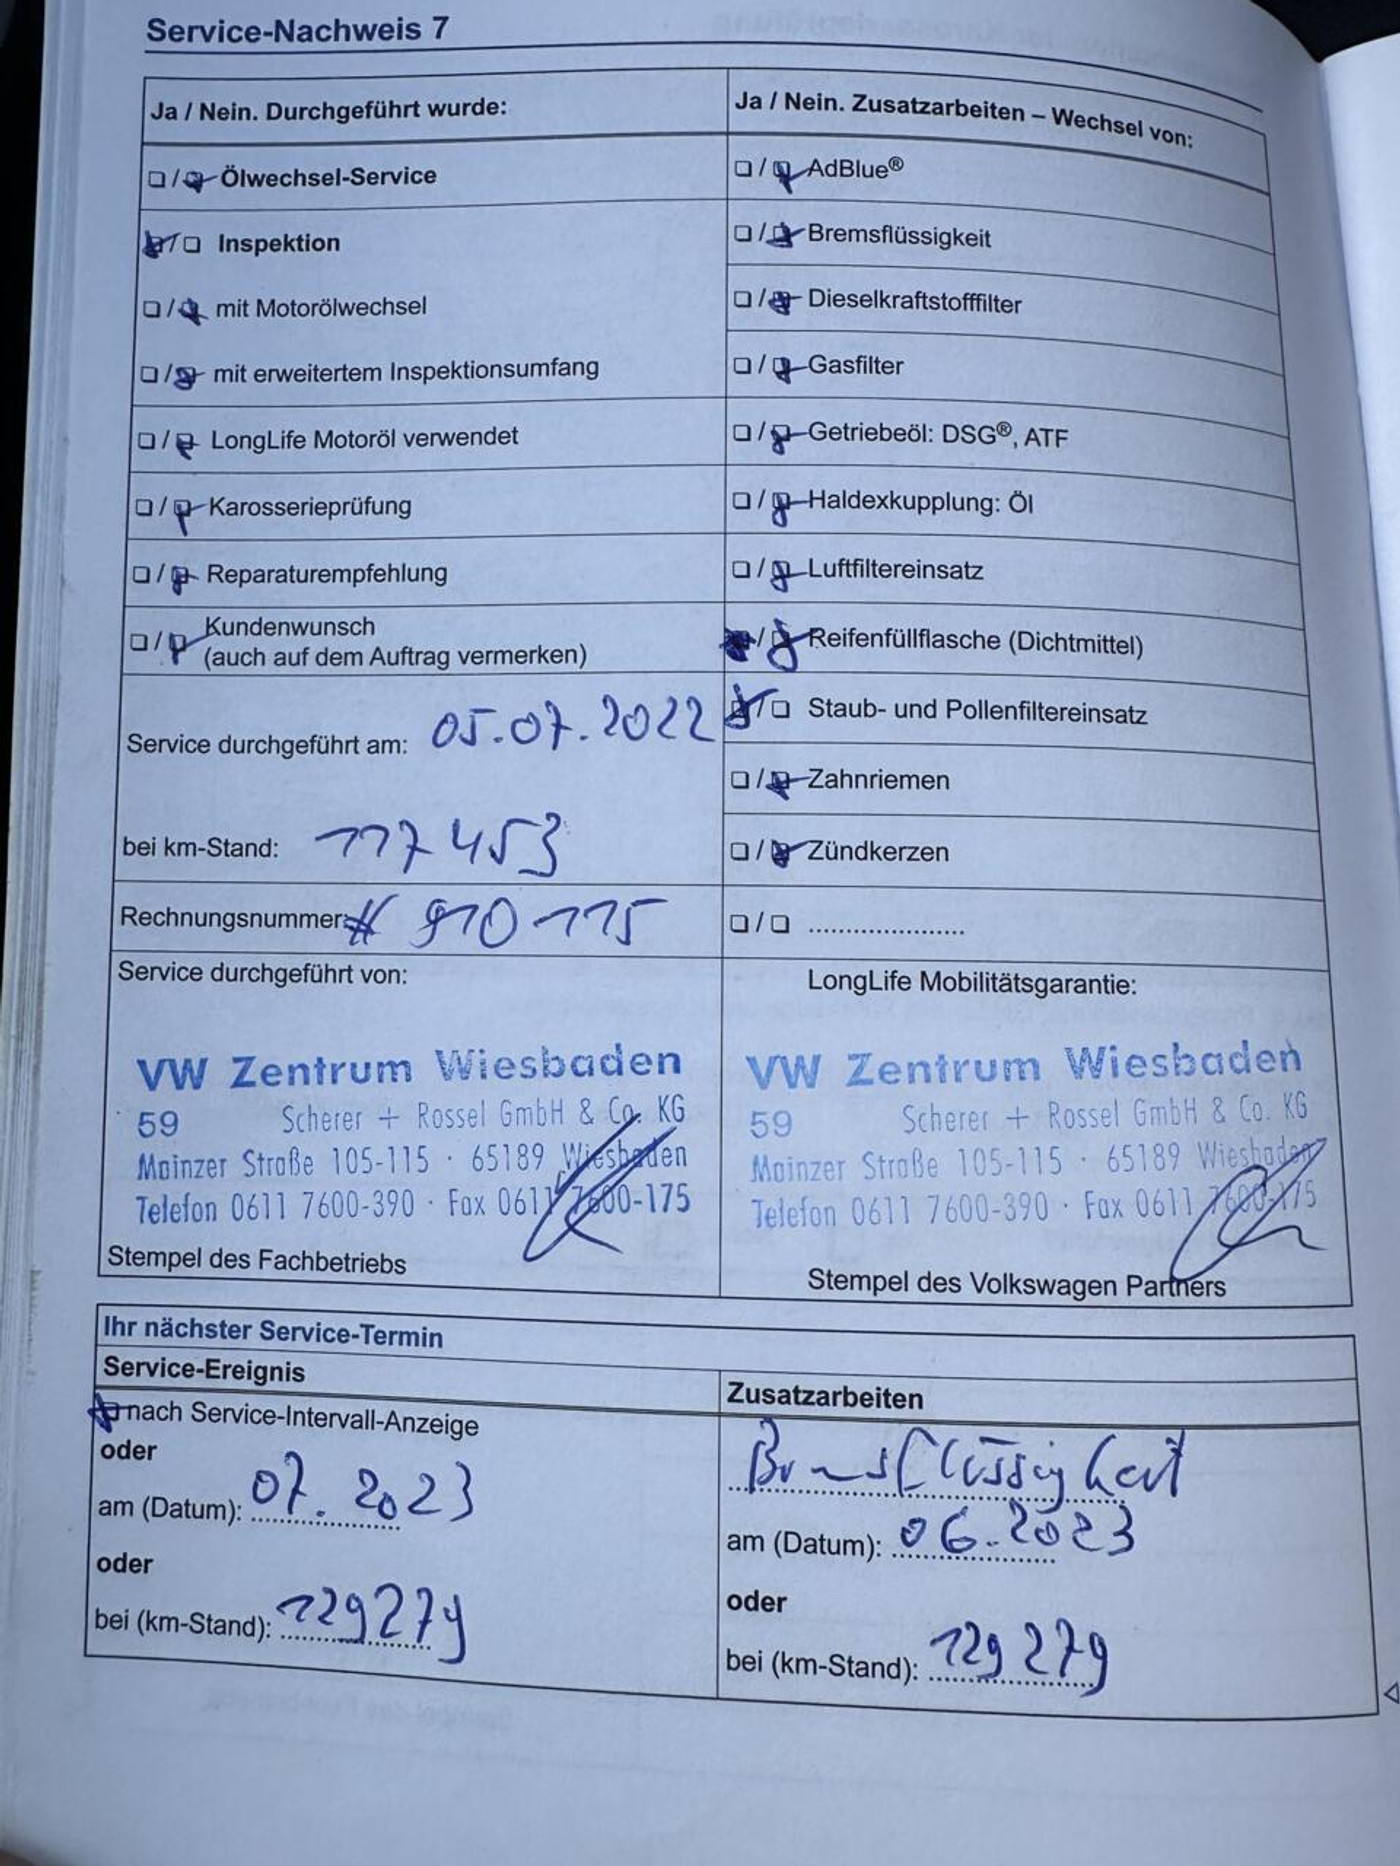 Service-Nachweis 7
Ja / Nein. Durchgeführt wurde:
❏ / ❏ Ölwechsel-Service
❏ / ❏ Inspektion
❏ / ❏ mit Motorölwechsel
❏ / ❏ mit erweitertem Inspektionsumfang
❏ / ❏ LongLife Motoröl verwendet
❏ / ❏ Karosserieprüfung
❏ / ❏ Reparaturempfehlung
❏ / ❏ Kundenwunsch
(auch auf dem Auftrag vermerken)
Service durchgeführt am: 05.07.2022
bei km-Stand: 117 453
Rechnungsnummer: # 910 115
Service durchgeführt von:
VW Zentrum Wiesbaden
59 Scherer + Rossel GmbH & Co. KG
Mainzer Straße 105-115 · 65189 Wiesbaden
Telefon 0611 7600-390 · Fax 0611 7600-175
Stempel des Fachbetriebs
Ja / Nein. Zusatzarbeiten – Wechsel von:
❏ / ❏ AdBlue®
❏ / ❏ Bremsflüssigkeit
❏ / ❏ Dieselkraftstofffilter
❏ / ❏ Gasfilter
❏ / ❏ Getriebeöl: DSG®, ATF
❏ / ❏ Haldexkupplung: Öl
❏ / ❏ Luftfiltereinsatz
❏ / ❏ Reifenfüllflasche (Dichtmittel)
❏ / ❏ Staub- und Pollenfiltereinsatz
❏ / ❏ Zahnriemen
❏ / ❏ Zündkerzen
❏ / ❏ .....................
LongLife Mobilitätsgarantie:
VW Zentrum Wiesbaden
59 Scherer + Rossel GmbH & Co. KG
Mainzer Straße 105-115 · 65189 Wiesbaden
Telefon 0611 7600-390 · Fax 0611 7600-175
Stempel des Volkswagen Partners
Ihr nächster Service-Termin
Service-Ereignis
❏ nach Service-Intervall-Anzeige
oder
am (Datum): 07.2023
oder
bei (km-Stand): 129279
Zusatzarbeiten
Bremsflüssigkeit
am (Datum): 06.2023
oder
bei (km-Stand): 129 279